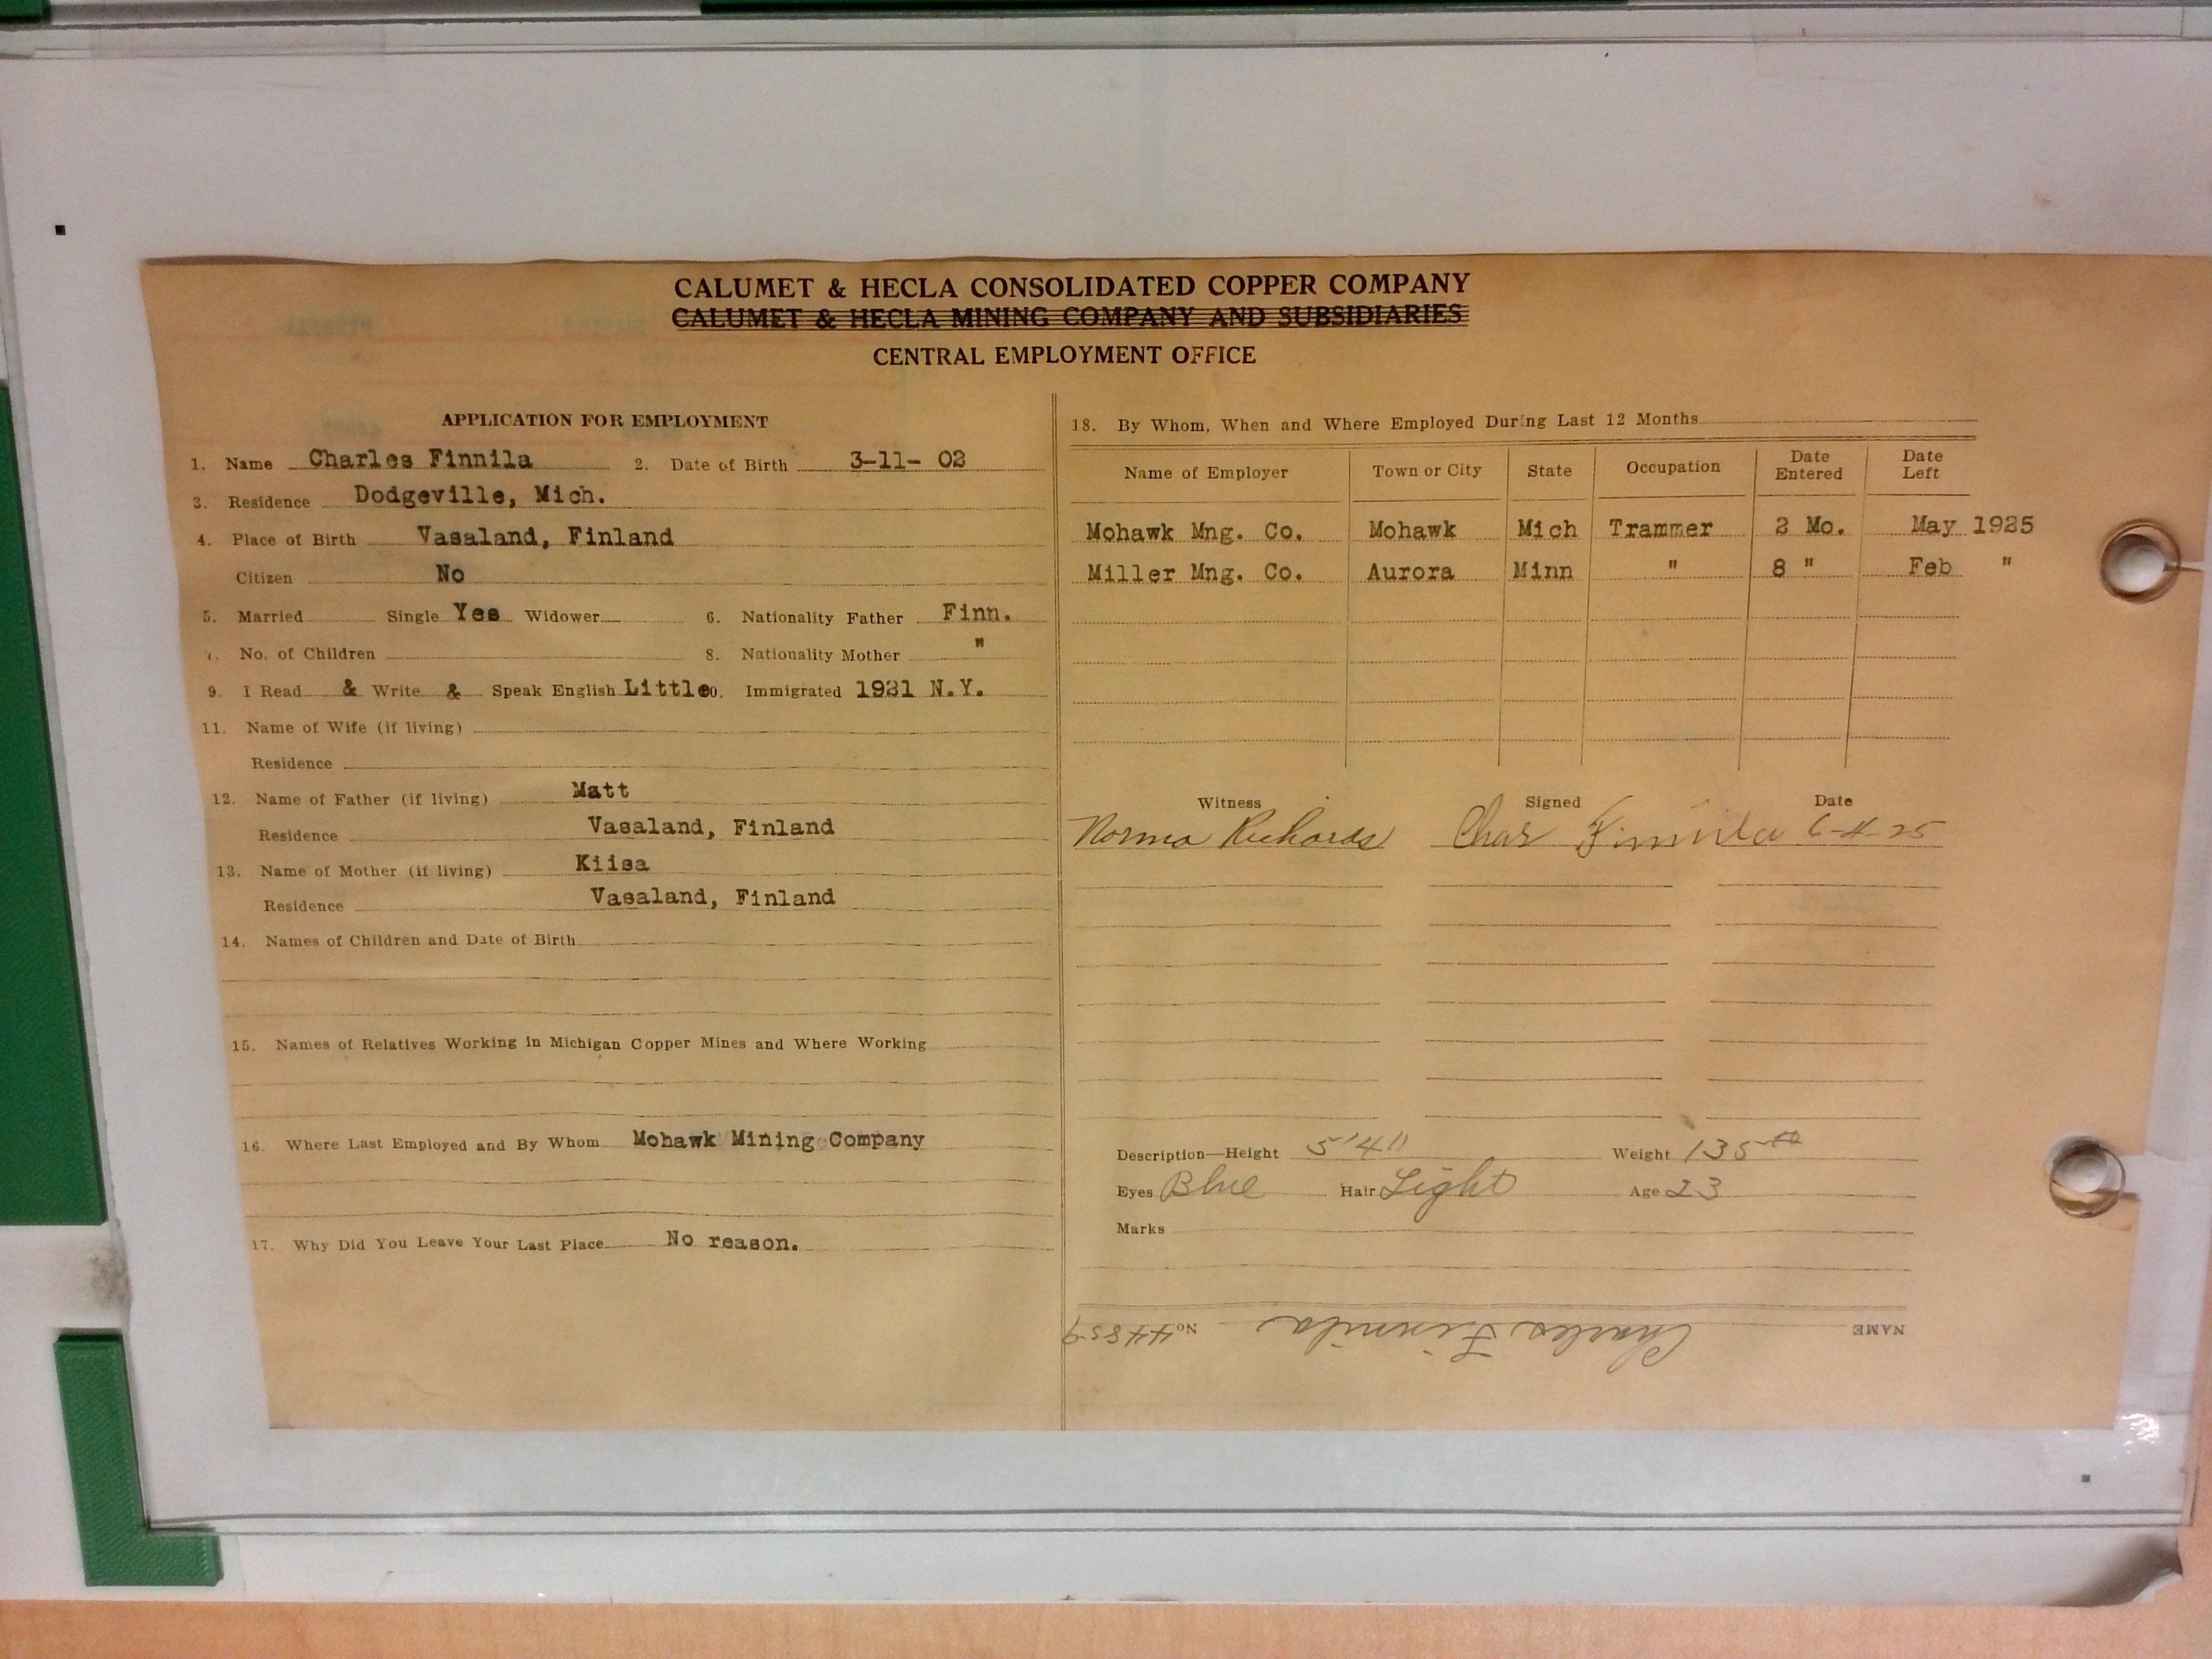 CALUMET & HECLA CONSOLIDATED COPPER COMPANY
CALUMET & HECLA MINING COMPANY AND SUBSIDIARIES
CENTRAL EMPLOYMENT OFFICE
APPLICATION FOR EMPLOYMENT
1. Name Charles Finnila 2. Date of Birth 3-11- 02
3. Residence Dodgeville, Mich.
4. Place of Birth Vasaland, Finland
Citizen No
5. Married Single Yes Widower 6. Nationality Father Finn.
7. No. of Children 8. Nationality Mother "
9. I Read & Write & Speak English Little 0. Immigrated 1921 N.Y.
11. Name of Wife (if living)
Residence
12. Name of Father (if living) Matt
Residence Vasaland, Finland
13. Name of Mother (if living) Kiisa
Residence Vasaland, Finland
14. Names of Children and Date of Birth
15. Names of Relatives Working in Michigan Copper Mines and Where Working
16. Where Last Employed and By Whom Mohawk Mining Company
17. Why Did You Leave Your Last Place No reason.
18. By Whom, When and Where Employed During Last 12 Months
Name of Employer Town or City State Occupation Date Entered Date Left
Mohawk Mng. Co. Mohawk Mich Trammer 2 Mo. May 1925
Miller Mng. Co. Aurora Minn " 8 " Feb "
Witness Signed Date
Norma Richards Chas Finnila 6-4-25
Description—Height 5'4" Weight 135 #
Eyes Blue Hair Light Age 23
Marks
NAME Charles Finnila No. 44859